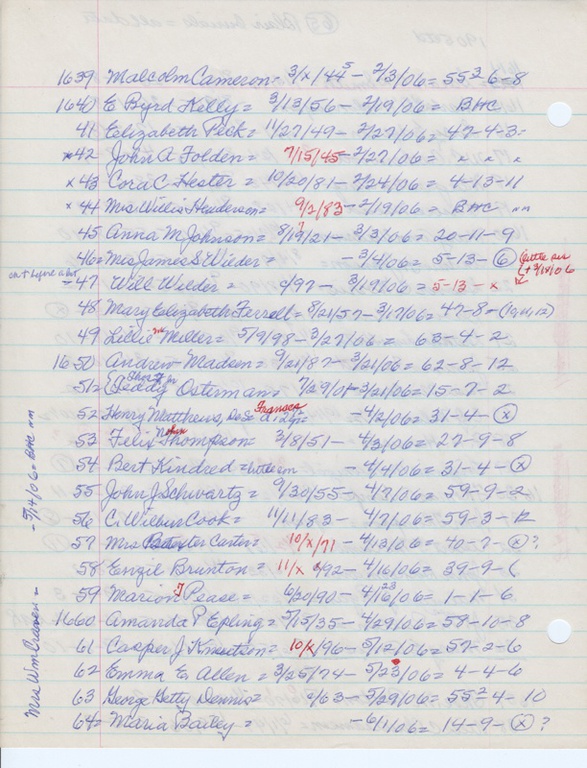 1639 Malcolm Cameron = 3/x/44 5 - 2/3/06 = 55 3 6-8
1640 E Byrd Kelly = 3/13/56 - 2/19/06 = BHC
41 Elizabeth Peck = 11/27/49 - 2/27/06 = 47-4-3
x42 John A Folden = 7/15/45 - 2/27/06 = " " "
x43 Cora C Hester = 10/20/81 - 2/24/06 = 4-13-11
x44 Mrs Willis Henderson = 9/2/83 - 2/19/06 = BHC nm
45 Anna M Johnson = 8/19/21 - 3/3/06 = 20-11-9
46 = Mrs James S Wilder = - 3/4/06 = 5-13-6
47 Will Wilder = c/97 - 3/19/06 = 5-13-x
48 Mary Elizabeth Ferrell = 8/21/57 - 3/17/06 = 47-8-(10,11,12)
49 Lillie Mc Miller = 5/9/98 - 3/27/06 = 63-4-2
1650 Andrew Madsen = 9/21/87 - 3/21/06 = 62-8-12
51 = Teddy Osterman = 7/29/01 - 3/21/06 = 15-7-2
52 Henry Matthews, Frances = - 4/2/06 = 31-4-x
53 Felix Thompson = 3/8/51 - 4/3/06 = 27-9-8
54 Bert Kindred = - 4/4/06 = 31-4-x
55 John J Schwartz = 9/30/55 - 4/7/06 = 59-9-2
56 C Wilbur Cook = 11/11/83 - 4/7/06 = 59-3-12
57 Mrs Carter = 10/x/71 - 4/13/06 = 40-7-x ?
58 Engil Brunton = 11/x/92 - 4/16/06 = 39-9-6
59 Marion J Pease = 6/20/90 - 4/16 23/06 = 1-1-6
1660 Amanda P Epling = 7/15/35 - 4/29/06 = 58-10-8
61 Casper J Knutson = 10/x/96 - 5/12/06 = 57-2-6
62 Emma E Allen = 3/25/74 - 5/23/06 = 4-4-6
63 George Getty Dennis = c/63 - 5/29/06 = 55 2 4-10
64 = Maria Bailey = - 6/1/06 = 14-9-x ?
Mrs Wm Craven = - 5/14/06 = BHC nm